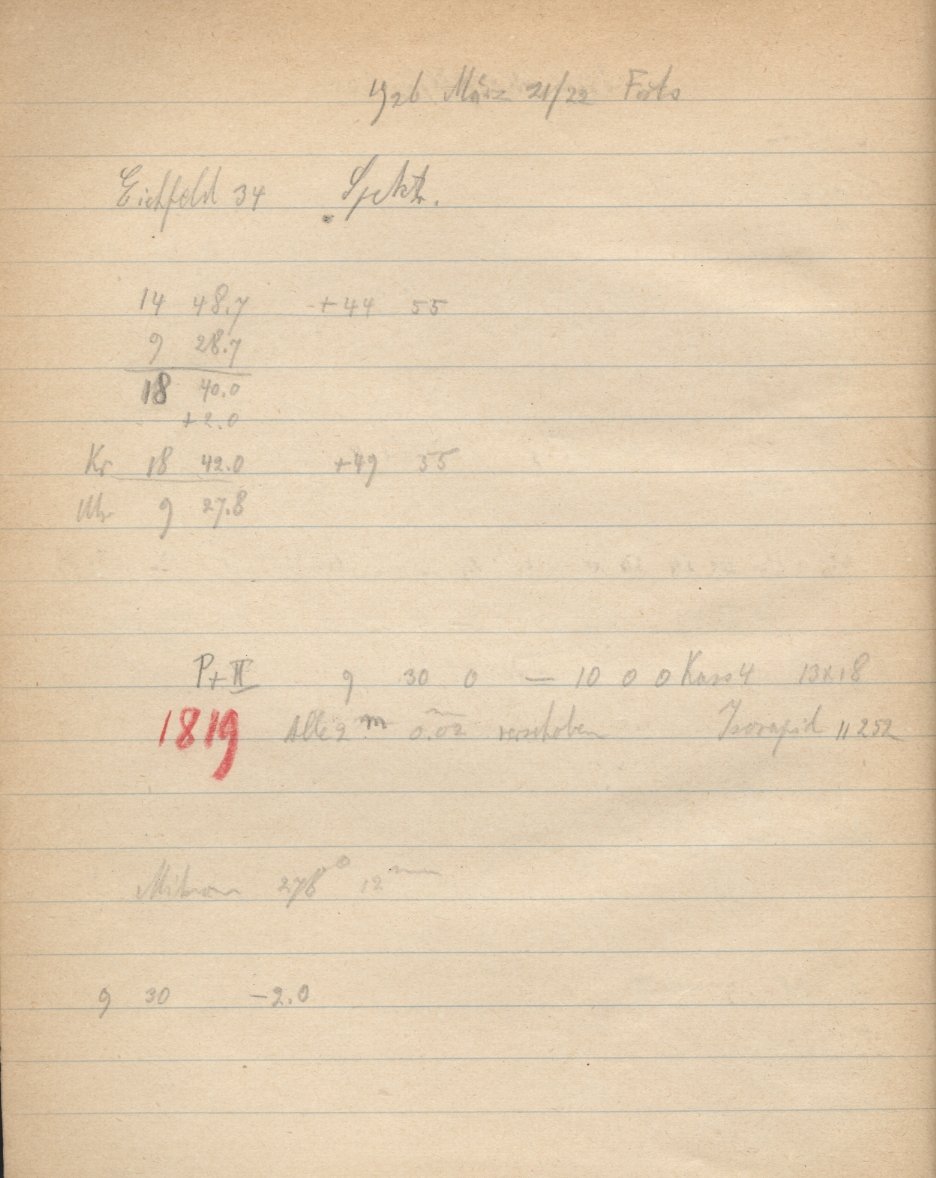 1926 März 21/22 Foto
Eichfeld 34 Spektr.
14 48.7 +44 55
9 28.7
18 40.0
+2.0
Kr 18 42.0 +49 55
Uhr 9 27.8
P+II 9 30 0 — 10 0 0 Kass 4 13x18
1819 Alle 2 m 0.02 verschoben Isorapid 11252
278° 12 mm
9 30 -2.0